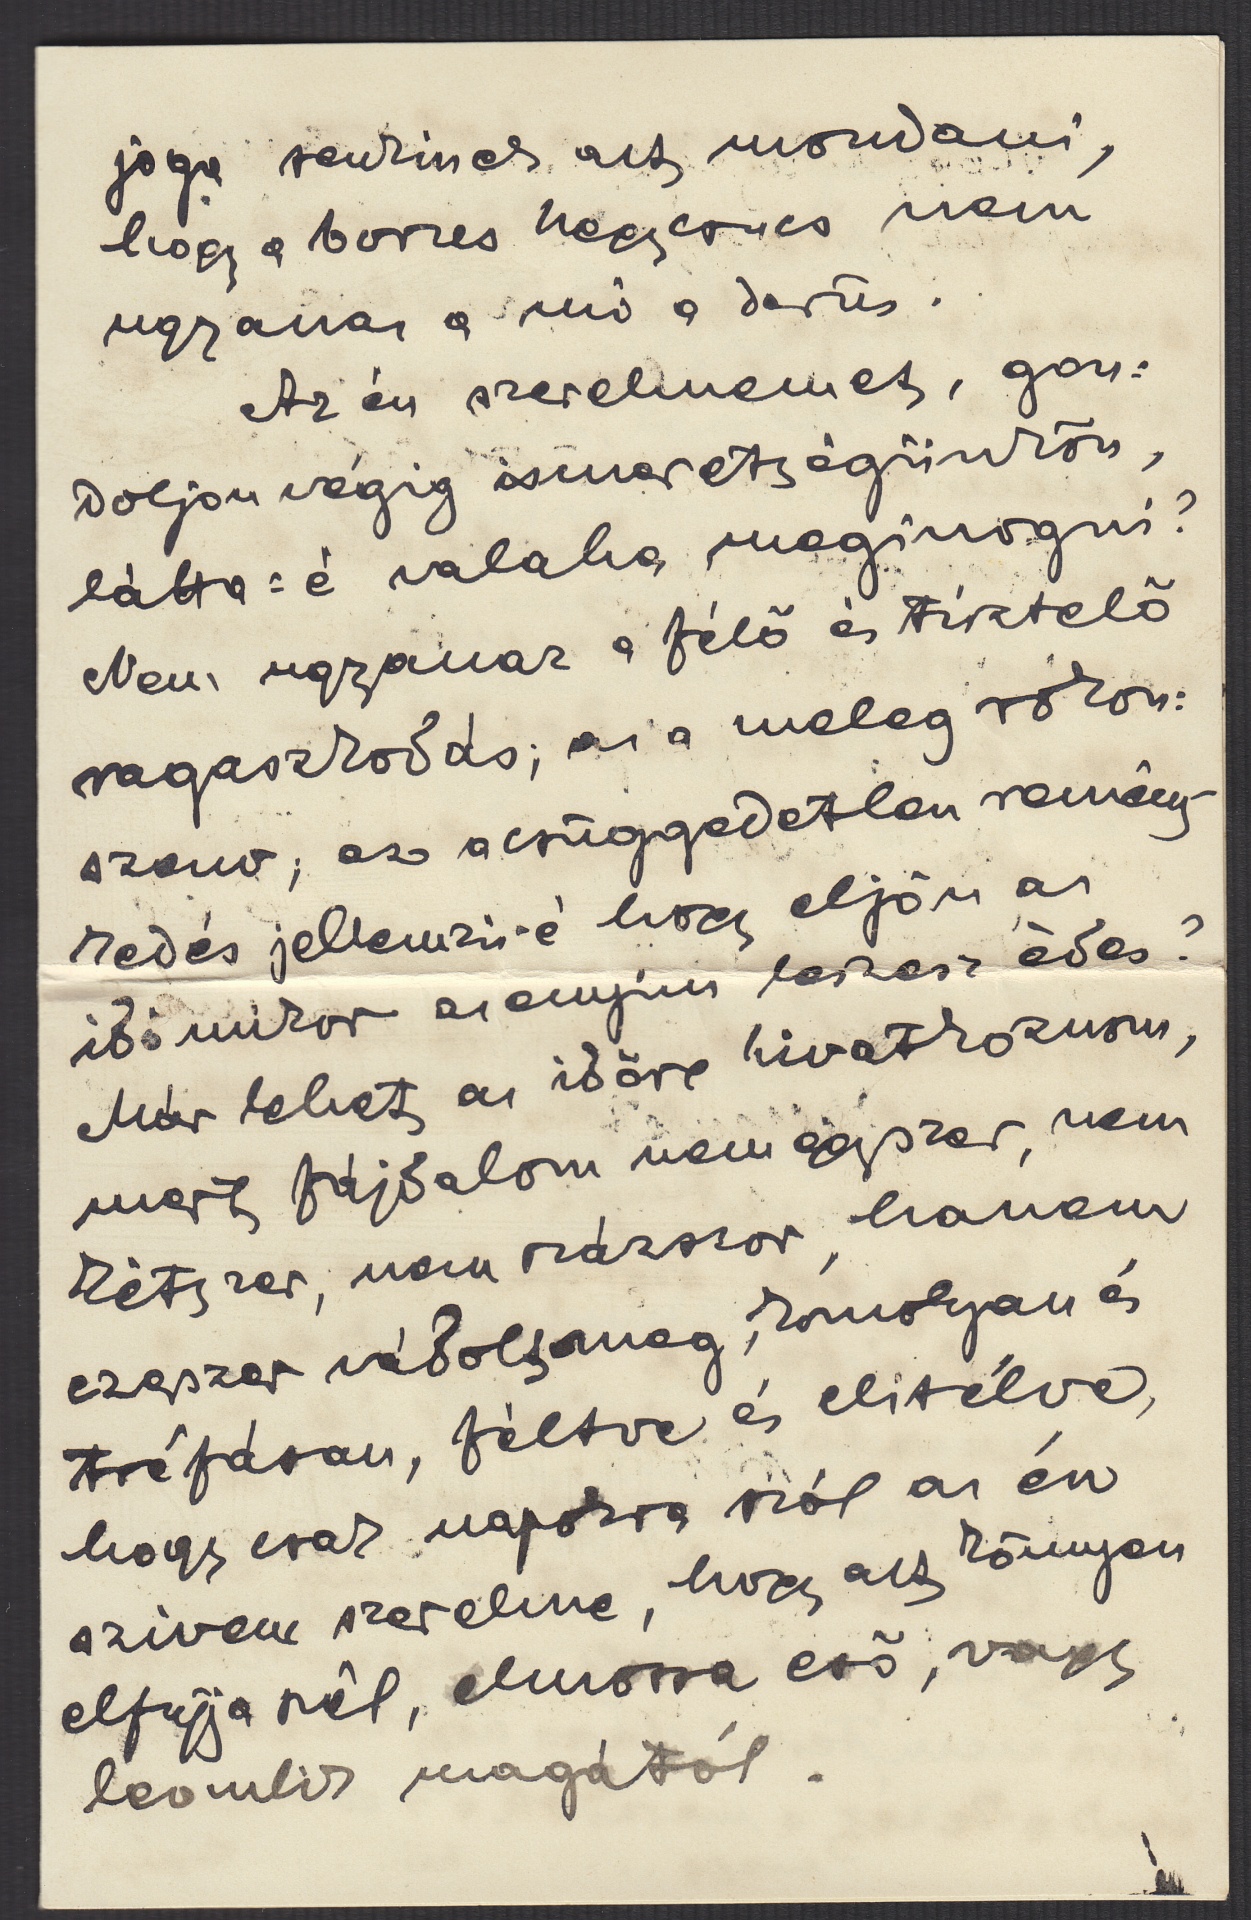 joga senkinek azt mondani,
hogy a borus hegycsucs nem
ugyanaz a mi a derüs.
Az én szerelmemet, gon=
doljon végig ismeretségünkön,
látta=é valaha meginogni?
Nem ugyanaz a félő és tisztelő
ragaszkodás; az a meleg rokon=
szenv; az a csüggedetlen remény
kedés jellemzi-é hogy eljön az
idő mikor az enyim leszesz édes?
Már lehet az időre hivatkoznom,
mert fájdalom nem egyszer, nem
kétszer, nem százszor, hanem
ezerszer vádolt meg, komolyan és
tréfásan, féltve és elitélve,
hogy csak napokra szól az én
szivem szerelme, hogy azt könnyen
elfujja szél, elmossa eső, vagy
leomlik magától.